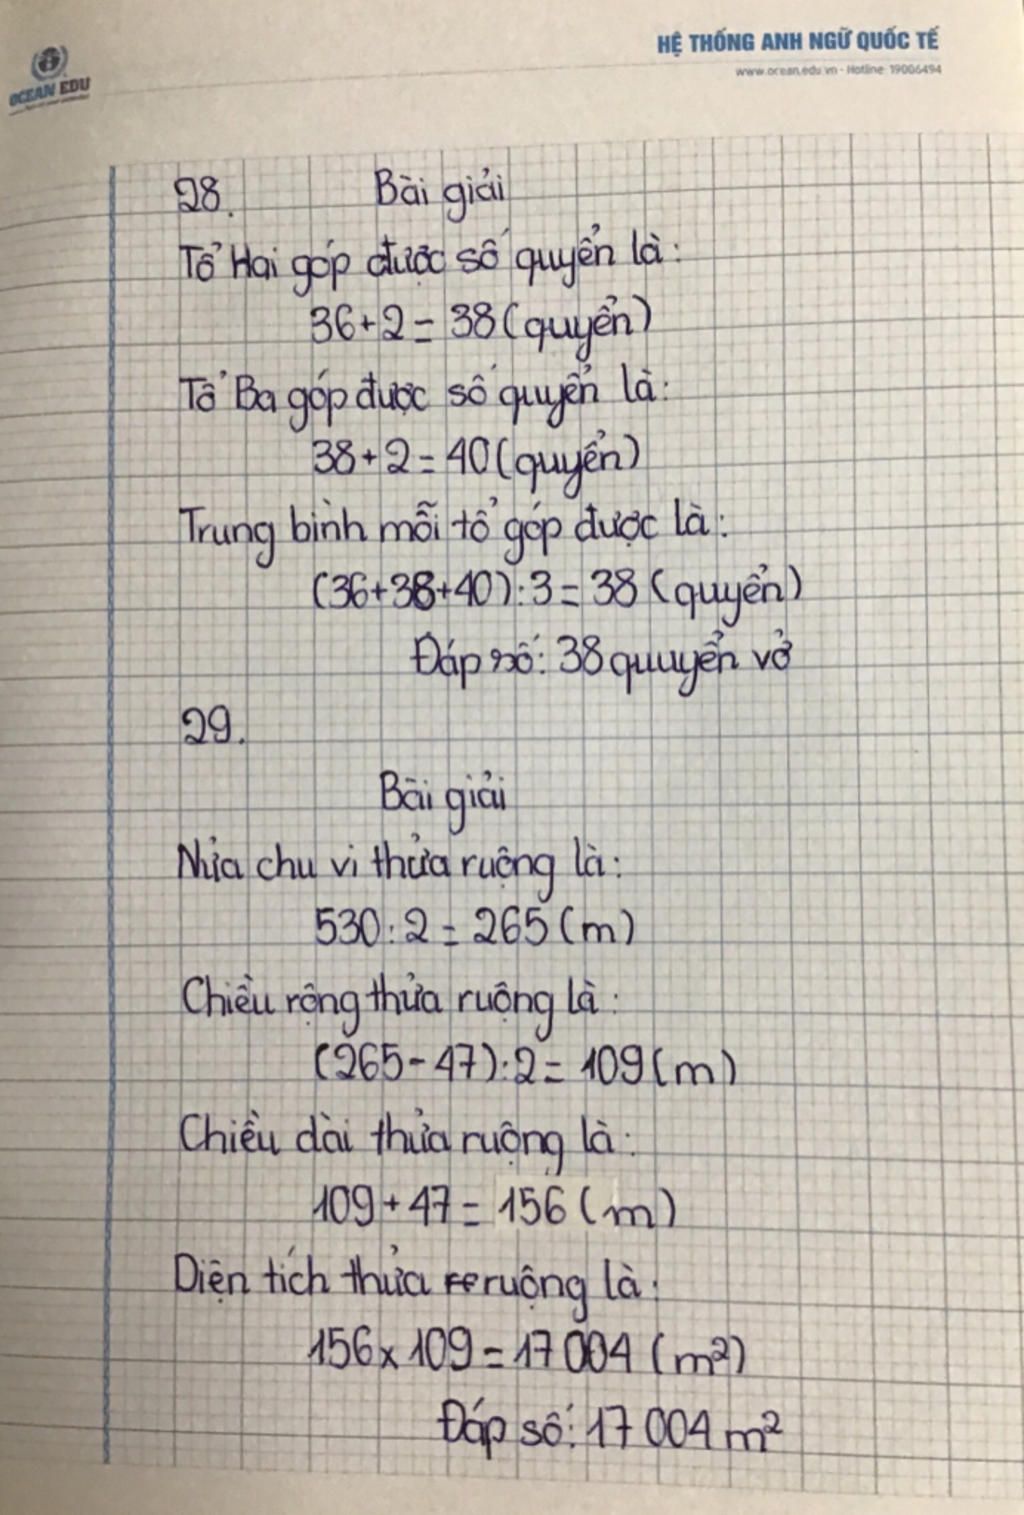 HỆ THỐNG ANH NGỮ QUỐC TẾ
www.ocean.edu.vn - Hotline: 19006494
OCEAN EDU
28. Bài giải
Tổ Hai góp được số quyển là:
36+2=38(quyển)
Tổ Ba góp được số quyển là:
38+2=40(quyển)
Trung bình mỗi tổ góp được là:
(36+38+40):3=38(quyển)
Đáp số: 38 quuyển vở
29.
Bài giải
Nửa chu vi thửa ruộng là:
530:2=265(m)
Chiều rộng thửa ruộng là:
(265-47):2=109(m)
Chiều dài thửa ruộng là:
109+47=156(m)
Diện tích thửa ruộng là:
156x109=17 004(m²)
Đáp số: 17 004 m²